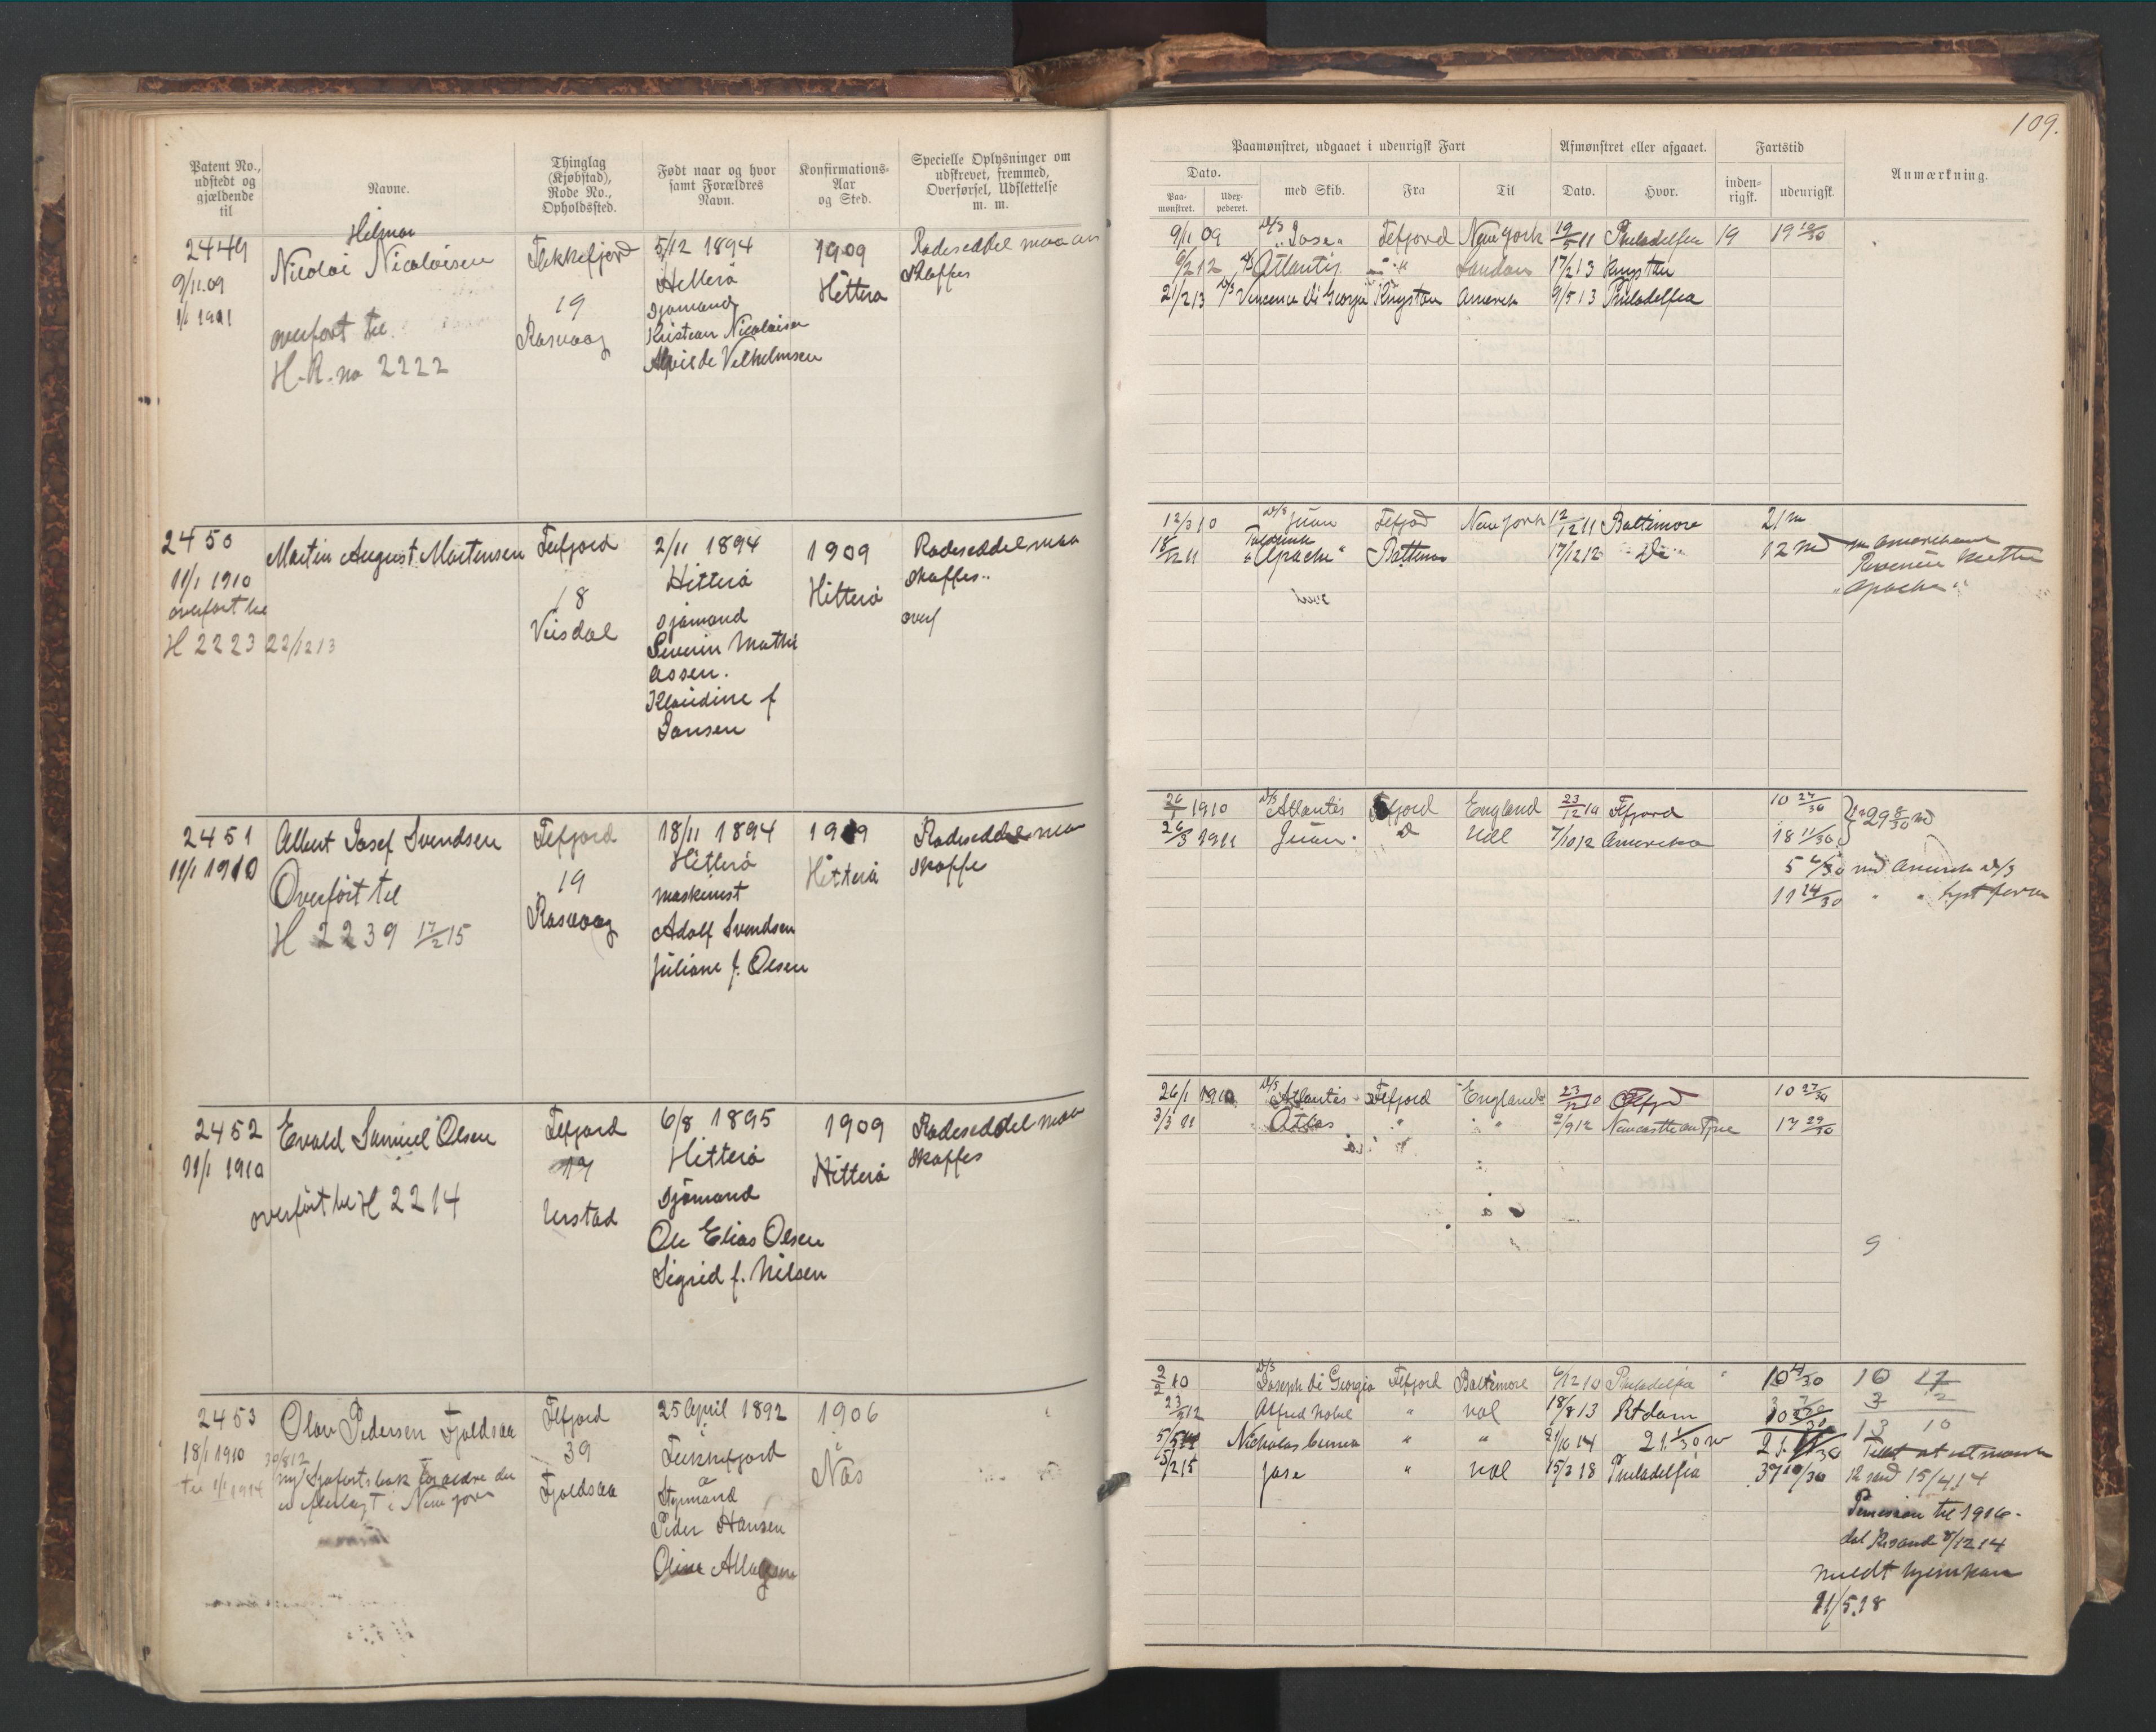 109.
Patent No., udstedt og gjældende til
Navne.
Thinglag (Kjøbstad), Rode No., Opholdssted.
Født naar og hvor samt Forældres Navn.
Konfirmations-Aar og Sted.
Specielle Oplysninger om udskrevet, fremmed, Overførsel, Udslettelse m. m.
Paamønstret, udgaaet i udenrigsk Fart
Afmønstret eller afgaaet.
Fartstid
Anmærkning.
Dato.
Paa-mønstret.
Uder-pederet.
med Skib.
Fra
Til
Dato.
Hvor.
inden-rigsk.
udenrigsk.
2449
9/11.09
1/1 1911
Hilmar
Nicolai Nicolaisen
overført til
H.R. no 2222
Flekkefjord
19
Rasvaag
5/12 1894
Hitterø
sjømand
Kristian Nicolaisen
Alvilde Vilhelmsen
1909
Hitterø
Rodeseddel maa an
skaffes
9/11 09 D/S "Jose" Fefjord New York 19/5 11 Philadelfia 19 19 10/30
6/2 12 D/S Atlantis " " London 17/2 13 Kingston
21/2 13 D/S Vincenzo di Georgia Kingston Amerik 9/5 13 Philadelfia
2450
11/1 1910
overført til
H 2223 22/12 13
Martin August Martensen
Fefjord
18
Veisdal
2/11 1894
Hitterø
sjømand
Severin Mathi
assen.
Klaudine f
Jansen
1909
Hitterø
Rodeseddel maa
skaffes..
overf
12/3 10 D/S Juan Fefjord New York 12/12 11 Baltimore 21 m
18/12 11 "Apache" Baltimor 17/12 12 Do 12 Md
"Apache"
2451
11/1 1910
Albert Josef Svendsen
Overført til
H 2239 17/2 15
Fefjord
19
Rasvaag
18/11 1894
Hitterø
maskinist
Adolf Svendsen
Juliane f. Olsen
1909
Hitterø
Rodeseddel maa
skaffe
26/1 1910 D/S Atlantis Fefjord England 23/12 10 Ffjord 10 27/30 29 8/30 md
26/3 1911 Juan d Udl 7/10 12 Amerika 18 11/30
5 6/30 md Amerik D/S
11 24/30 " " lyst
2452
11/1 1910
Evald Samuel Olsen
overført til H 2214
Fefjord
17
Urstad
6/8 1895
Hitterø
sjømand
Ole Elias Olsen
Sigrid f. Nilsen
1909
Hitterø
Rodeseddel maa
skaffes
26/1 1910 D/S Atlantis Fefjord England 23/12 10 Ffjord 10 27/30
3/3 11 Atlas " " " 2/9 12 Newcastle on Tyne 17 29/30
9
2453
18/1 1910
til 1/1 1914
Olav Pedersen Fjeldsaa
30/8 12
ny Sjøfartsbok
i New York
Fefjord
39
Fjeldsaa
25 April 1892
Flekkefjord
Styrmand
Peder Hansen
Oline
1906
Nås
2/2 10 D/S Joseph di Georgia Fefjord Baltimore 6/12 10 Philadelfia 10 4/30 10 17
23/5 12 Alfred Nobel " Udl 18/8 13 Rtdam 3 2
Nicholas Cuneo " " 21/10 14 13 10
15/2 15 Jose " Udl 15/3 18 Philadelfia 37 10/30 12 md 15/4 14
til 1916.
8/12 14
meldt hjemkom
21/5.18